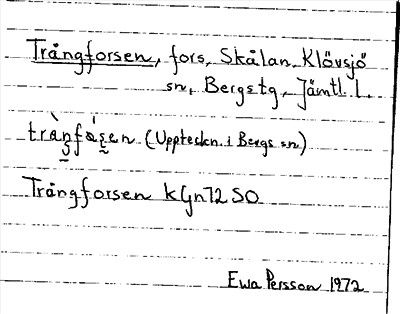 Trångforsen, fors, Skålan, Klövsjö
sn, Bergs tg, Jämtl. l.
(Uppteckn. i Bergs sn)
Trångforsen kGn72 SO
Ewa Persson 1972